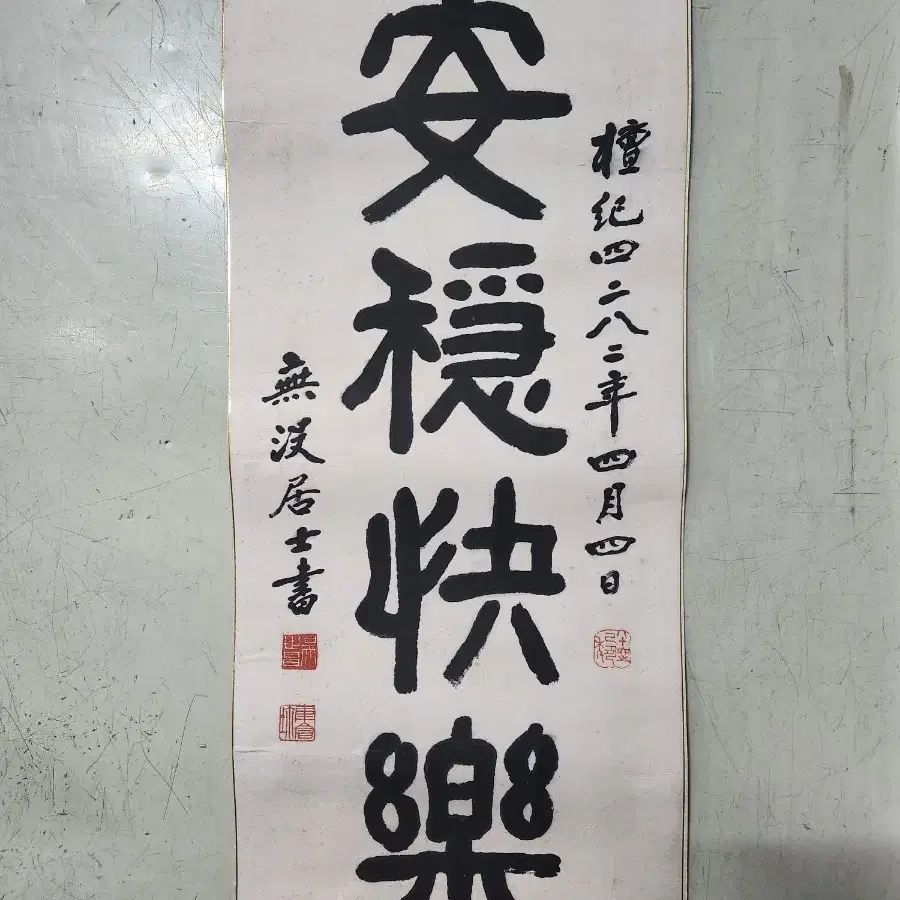 檀紀四二八二年四月四日
安穩快樂
無沒居士書